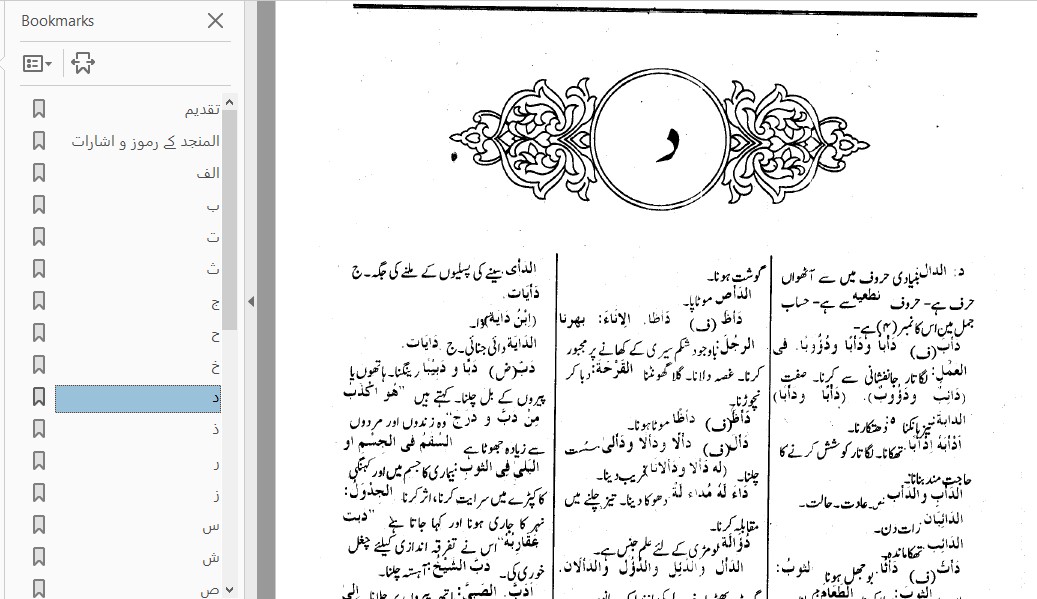 Bookmarks
تقدیم
المنجد کے رموز و اشارات
الف
ب
ت
ث
ج
ح
خ
د
ذ
ر
ز
س
ش
ص
د
د: الدال بنیادی حروف میں سے آٹھواں
حرف ہے۔ حروف نطعیہ سے ہے۔ حساب
جمل میں اس کا نمبر (۴) ہے۔
دَأبَ (ف) دَأْبًا وَدَأَبًا وَدُؤُوبًا. فی
العمل: لگاتار جانفشانی سے کرنا۔ صفت
(دَائِبٌ وَدَؤُوبٌ). (دَأْبًا وَدَأَبًا)
الدابة تیز ہانکنا ٥ دھتکارنا۔
اَدْأبَهُ اِدْآبًا تھکانا۔ لگاتار کوشش کرنے کا
حاجت مند بنانا۔
الدَّأْب والدَّأَب س۔ عادت۔ حالت۔
الدائبان رات دن۔
الدائب تھکا ماندہ۔
(ف) دَأْثًا. بوجھل ہونا
الثوبُ: الطَّعَامَ
گوشت ہونا۔
الدأص موٹاپا۔
دَأظَ (ف) دَأظًا. الاِنَاءَ: بھرنا
الرجُلَ باوجود شکم سیری کے کھانے پر مجبور
کرنا۔ غصہ دلانا۔ گلا گھونٹنا القَرْحَةَ: دبا کر
نچوڑنا۔
دَأظَ (ف) دأظًا موٹا ہونا۔
دَأَلَ (ف) دَأْلًا ودَأَلًا و دَأَلَى سست
چلنا۔ (لَه دَأْلًا ودَأَلَانًا) فریب دینا۔
دَاءَ لَهُ مُدَاءَ لَةً دھوکا دینا۔ تیز چلنے میں
مقابلہ کرنا۔
دُؤَالَة لومڑی کے لئے علم جنس ہے۔
الدَأل والدُئِل والدُؤُل والدألان.
الدَأى سینے کی پسلیوں کے ملنے کی جگہ۔ ج
دَأیَات.
(اِبْنُ دَایَة) کوا۔
الدَّایَة دائی جنائی۔ ج. دَایَات.
دَبَّ (ض) دَبًّا و دَبِیْبًا رینگنا۔ ہاتھوں یا
پیروں کے بل چلنا۔ کہتے ہیں "هُوَ اَكْذَبُ
مِنْ دَبَّ وَ دَرَجَ" وہ زندوں اور مردوں
سے زیادہ جھوٹا ہے السُّقْمُ فی الجِسْمِ او
البِلٰى فِى الثوبِ: بیماری کا جسم میں اور کہنگی
کا کپڑے میں سرایت کرنا، اثر کرنا الجَدْوَلُ:
نہر کا جاری ہونا اور کہا جاتا ہے "دبت
عَقَارِبُهُ" اس نے تفرقہ اندازی کیلئے چغل
خوری کی۔ دَبَّ الشَّيْخُ: آہستہ چلنا۔
اَدَبَّ. الصَّبِیَّ: ہاتھ پیروں پر چلانا۔ الی